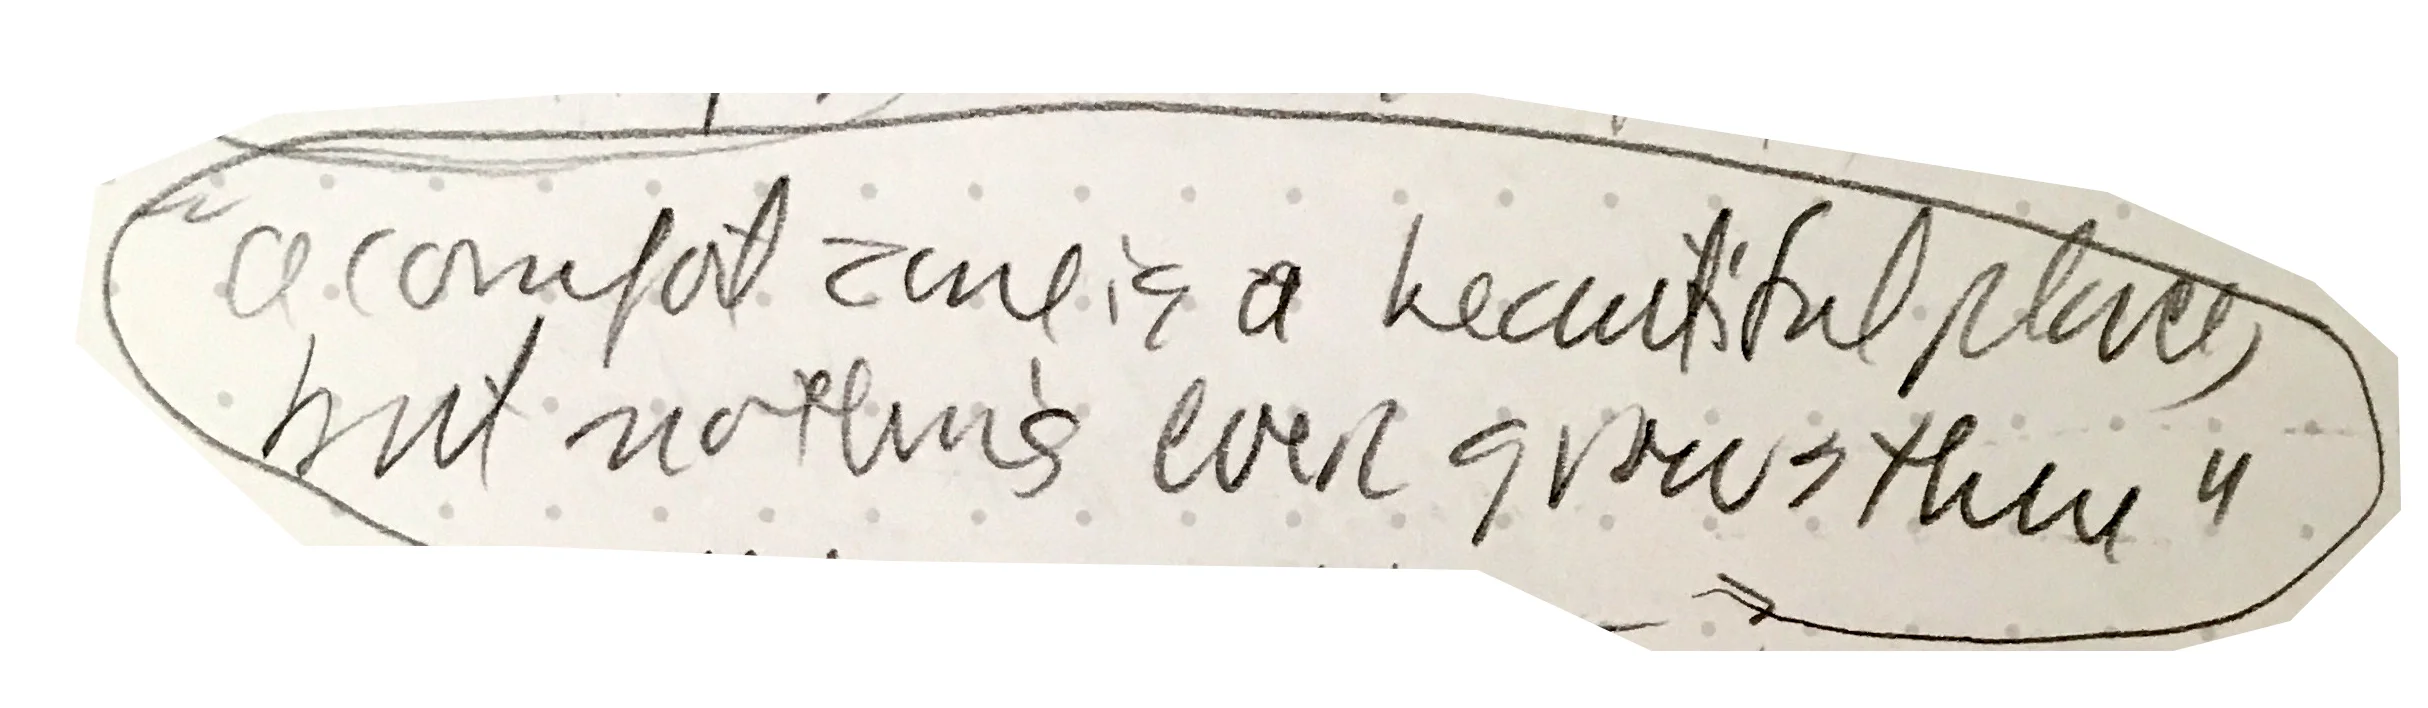 "a comfort zone is a beautiful place,
but nothing ever grows there"